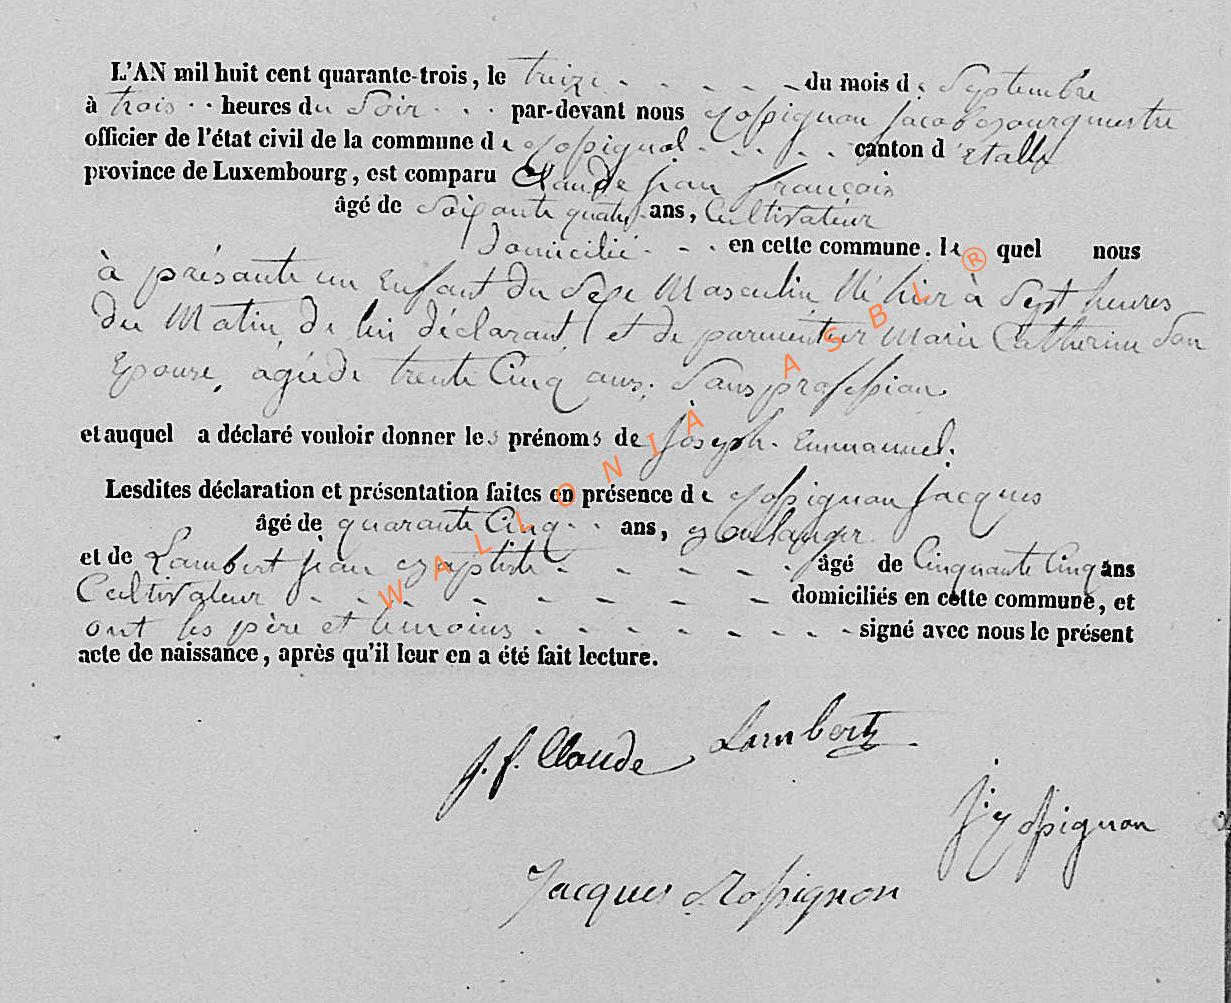 L'AN mil huit cent quarante-trois, le treize - - - - - du mois de Septembre
à trois - - heures du Soir - - - par-devant nous Rossignon Jacob Bourgmestre
officier de l'état civil de la commune de Rossignol - - - - canton d'Etalle
province de Luxembourg, est comparu Claude jean françois
âgé de Soixante quatre ans, Cultivateur
Domicilié - - - en cette commune. lequel nous
à présenté un Enfant du Sexe Masculin Né hier à Sept heures
du Matin, de lui déclarant, et de parmentier Marie Catherine Son
Epouse, agée de trente Cinq ans. Sans profession.
et auquel a déclaré vouloir donner les prénoms de Joseph. Emmanuel.
Lesdites déclaration et présentation faites en présence de Rossignon Jacques
âgé de quarante Cinq - - ans, Boulanger
et de Lambert jean Baptiste - - - - - - âgé de Cinquante Cinq ans
Cultivateur - - - - - - - - domiciliés en cette commune, et
ont les père et temoins - - - - - - - signé avec nous le présent
acte de naissance, après qu'il leur en a été fait lecture.
WALLONIA ASBL ®
j. f. Claude Lambert
J. Rossignon
Jacques Rossignon